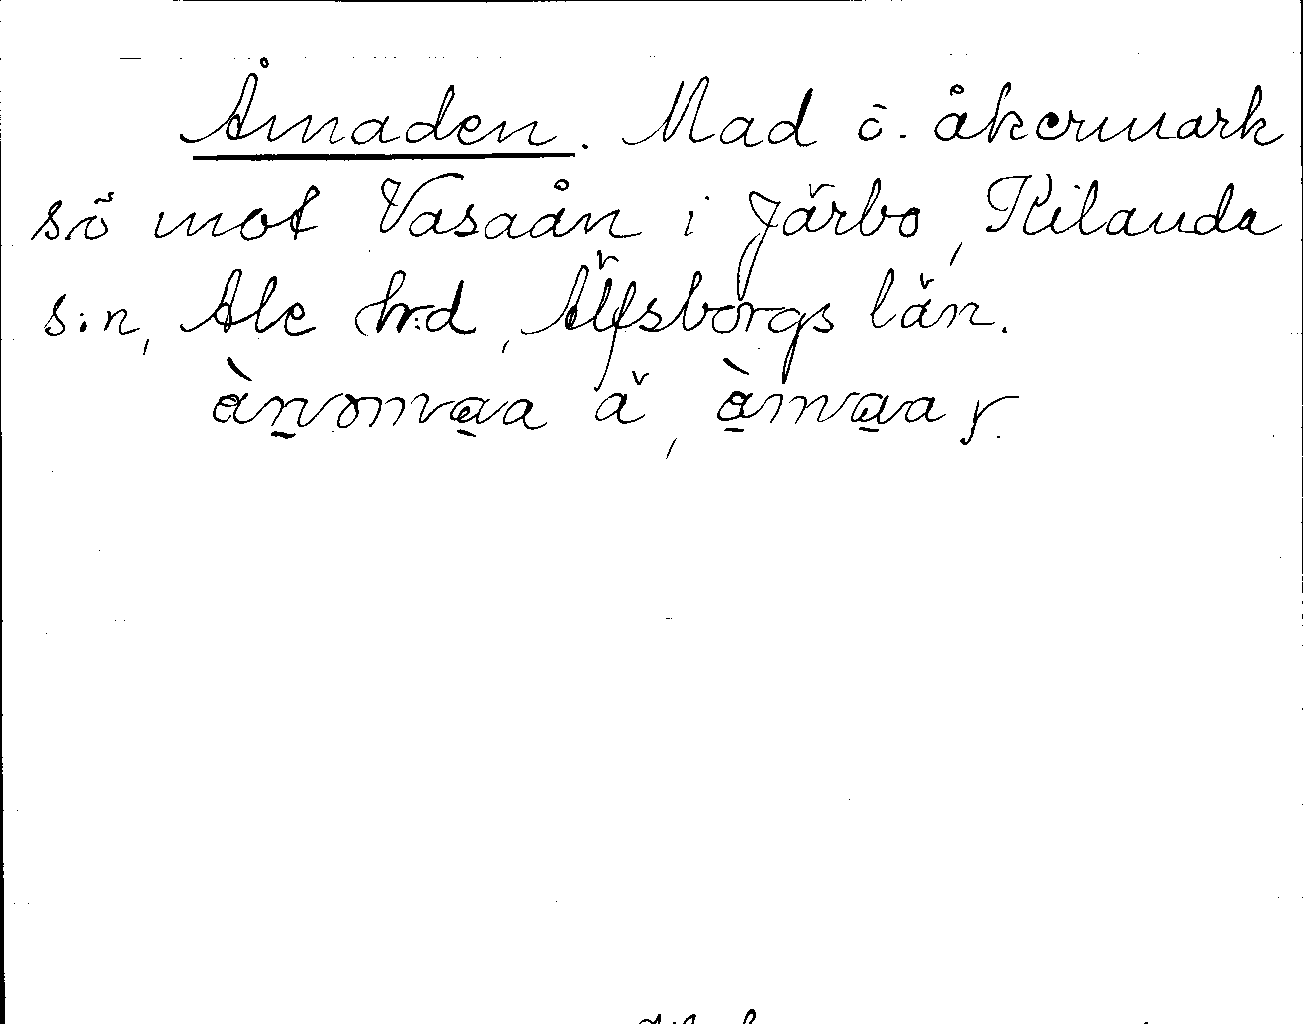 Åmaden. Mad o. åkermark
sö mot Vasaån i Järbo, Kilanda
s:n, Ale hrd, Älfsborgs län.